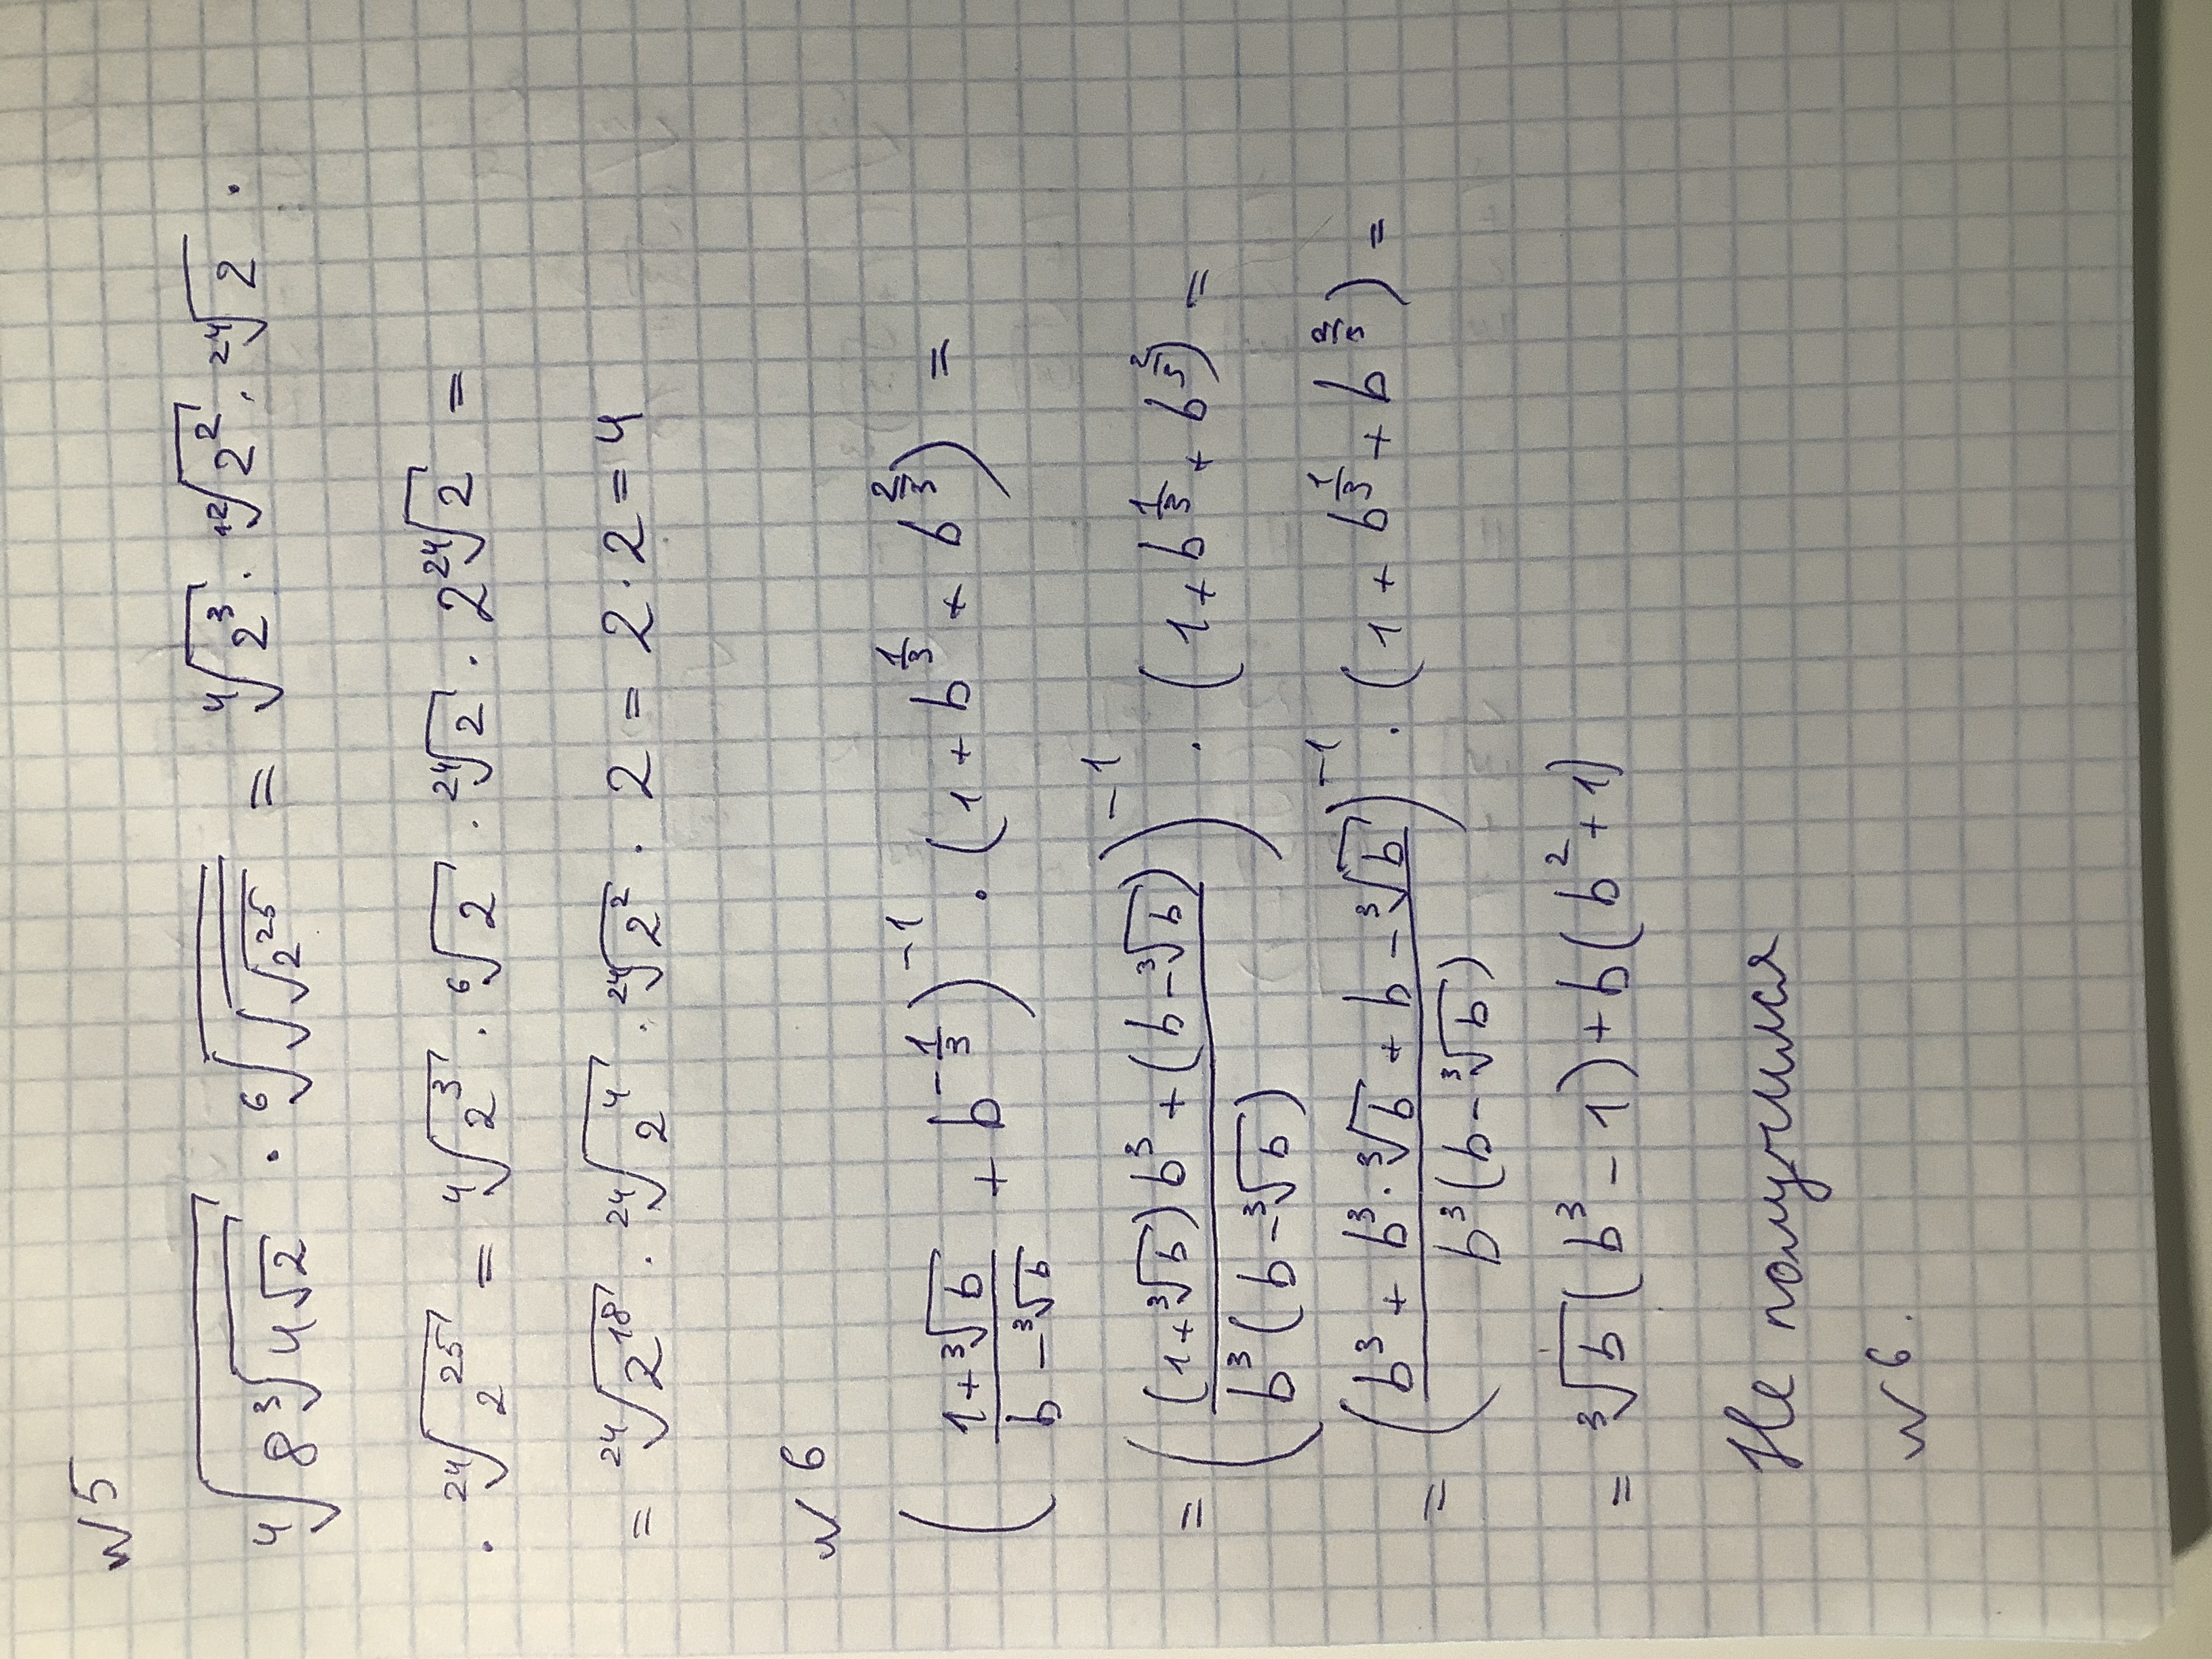 №5
⁴√(8∛(4√2)) · ⁶√(√(√(2²⁵))) = ⁴√(2³) · ¹²√(2²) · ²⁴√2 ·
· ²⁴√(2²⁵) = ⁴√(2³) · ⁶√2 · ²⁴√2 · 2 ²⁴√2 =
= ²⁴√(2¹⁸) · ²⁴√(2⁴) · ²⁴√(2²) · 2 = 2·2 = 4
№6
((1+∛b)/(b-∛b) + b^(-1/3))^(-1) · (1 + b^(1/3) + b^(2/3)) =
= (((1+∛b)b³ + (b-∛b))/(b³(b-∛b)))^(-1) · (1 + b^(1/3) + b^(2/3)) =
= ((b³ + b³·∛b + b - ∛b)/(b³(b-∛b)))^(-1) · (1 + b^(1/3) + b^(2/3)) =
= ∛b(b³ - 1) + b(b² + 1)
Не получился
№6.